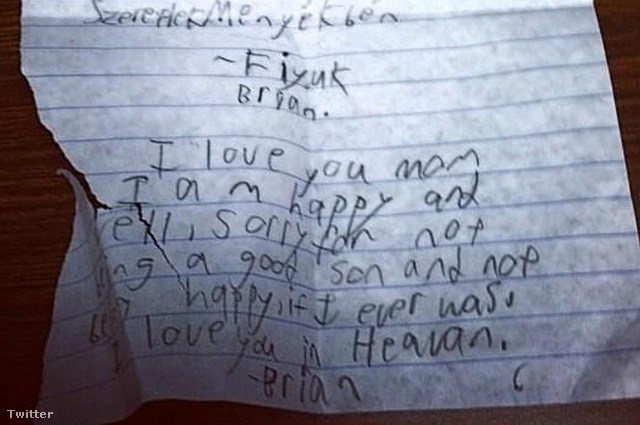 Szeretlek Menyékbén
~Fiyuk
Brian.
I love you mom
I am happy and
ell, sorry for not
ing a good son and not
happy, if I ever was.
I love you in Heavan.
-Brian
Twitter